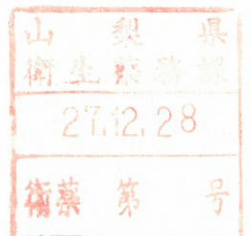 山梨県
衛生薬務課
27.12.28
衛薬第 号